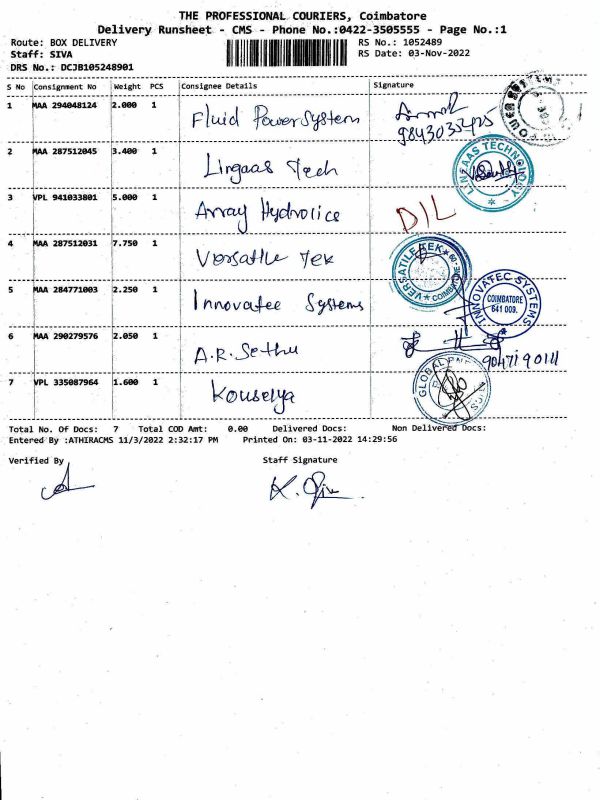 THE PROFESSIONAL COURIERS, Coimbatore
Delivery Runsheet - CMS - Phone No.:0422-3505555 - Page No.:1
Route: BOX DELIVERY RS No.: 1052489
Staff: SIVA RS Date: 03-Nov-2022
DRS No.: DCJB105248901
S No Consignment No Weight PCS Consignee Details Signature
1 MAA 294048124 2.000 1 Fluid PowerSystem
2 MAA 287512045 3.400 1 Lingaas Tech LYNGAAS TECHNOLOGY
3 VPL 941033801 5.000 1 Array Hydrolics DIL
4 MAA 287512031 7.750 1 Versatile Tek VERSATILE TEK COIMBATORE
5 MAA 284771003 2.250 1 Innovatec Systems INNOVATEC SYSTEMS COIMBATORE 641 009.
6 MAA 290279576 2.050 1 A.R. Sethu
7 VPL 335087964 1.600 1 Kouselya GLOBAL
Total No. Of Docs: 7 Total COD Amt: 0.00 Delivered Docs: Non Delivered Docs:
Entered By :ATHIRACMS 11/3/2022 2:32:17 PM Printed On: 03-11-2022 14:29:56
Verified By Staff Signature